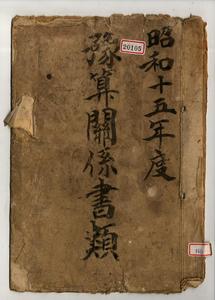 昭和十五年度
豫算關係書類
20105